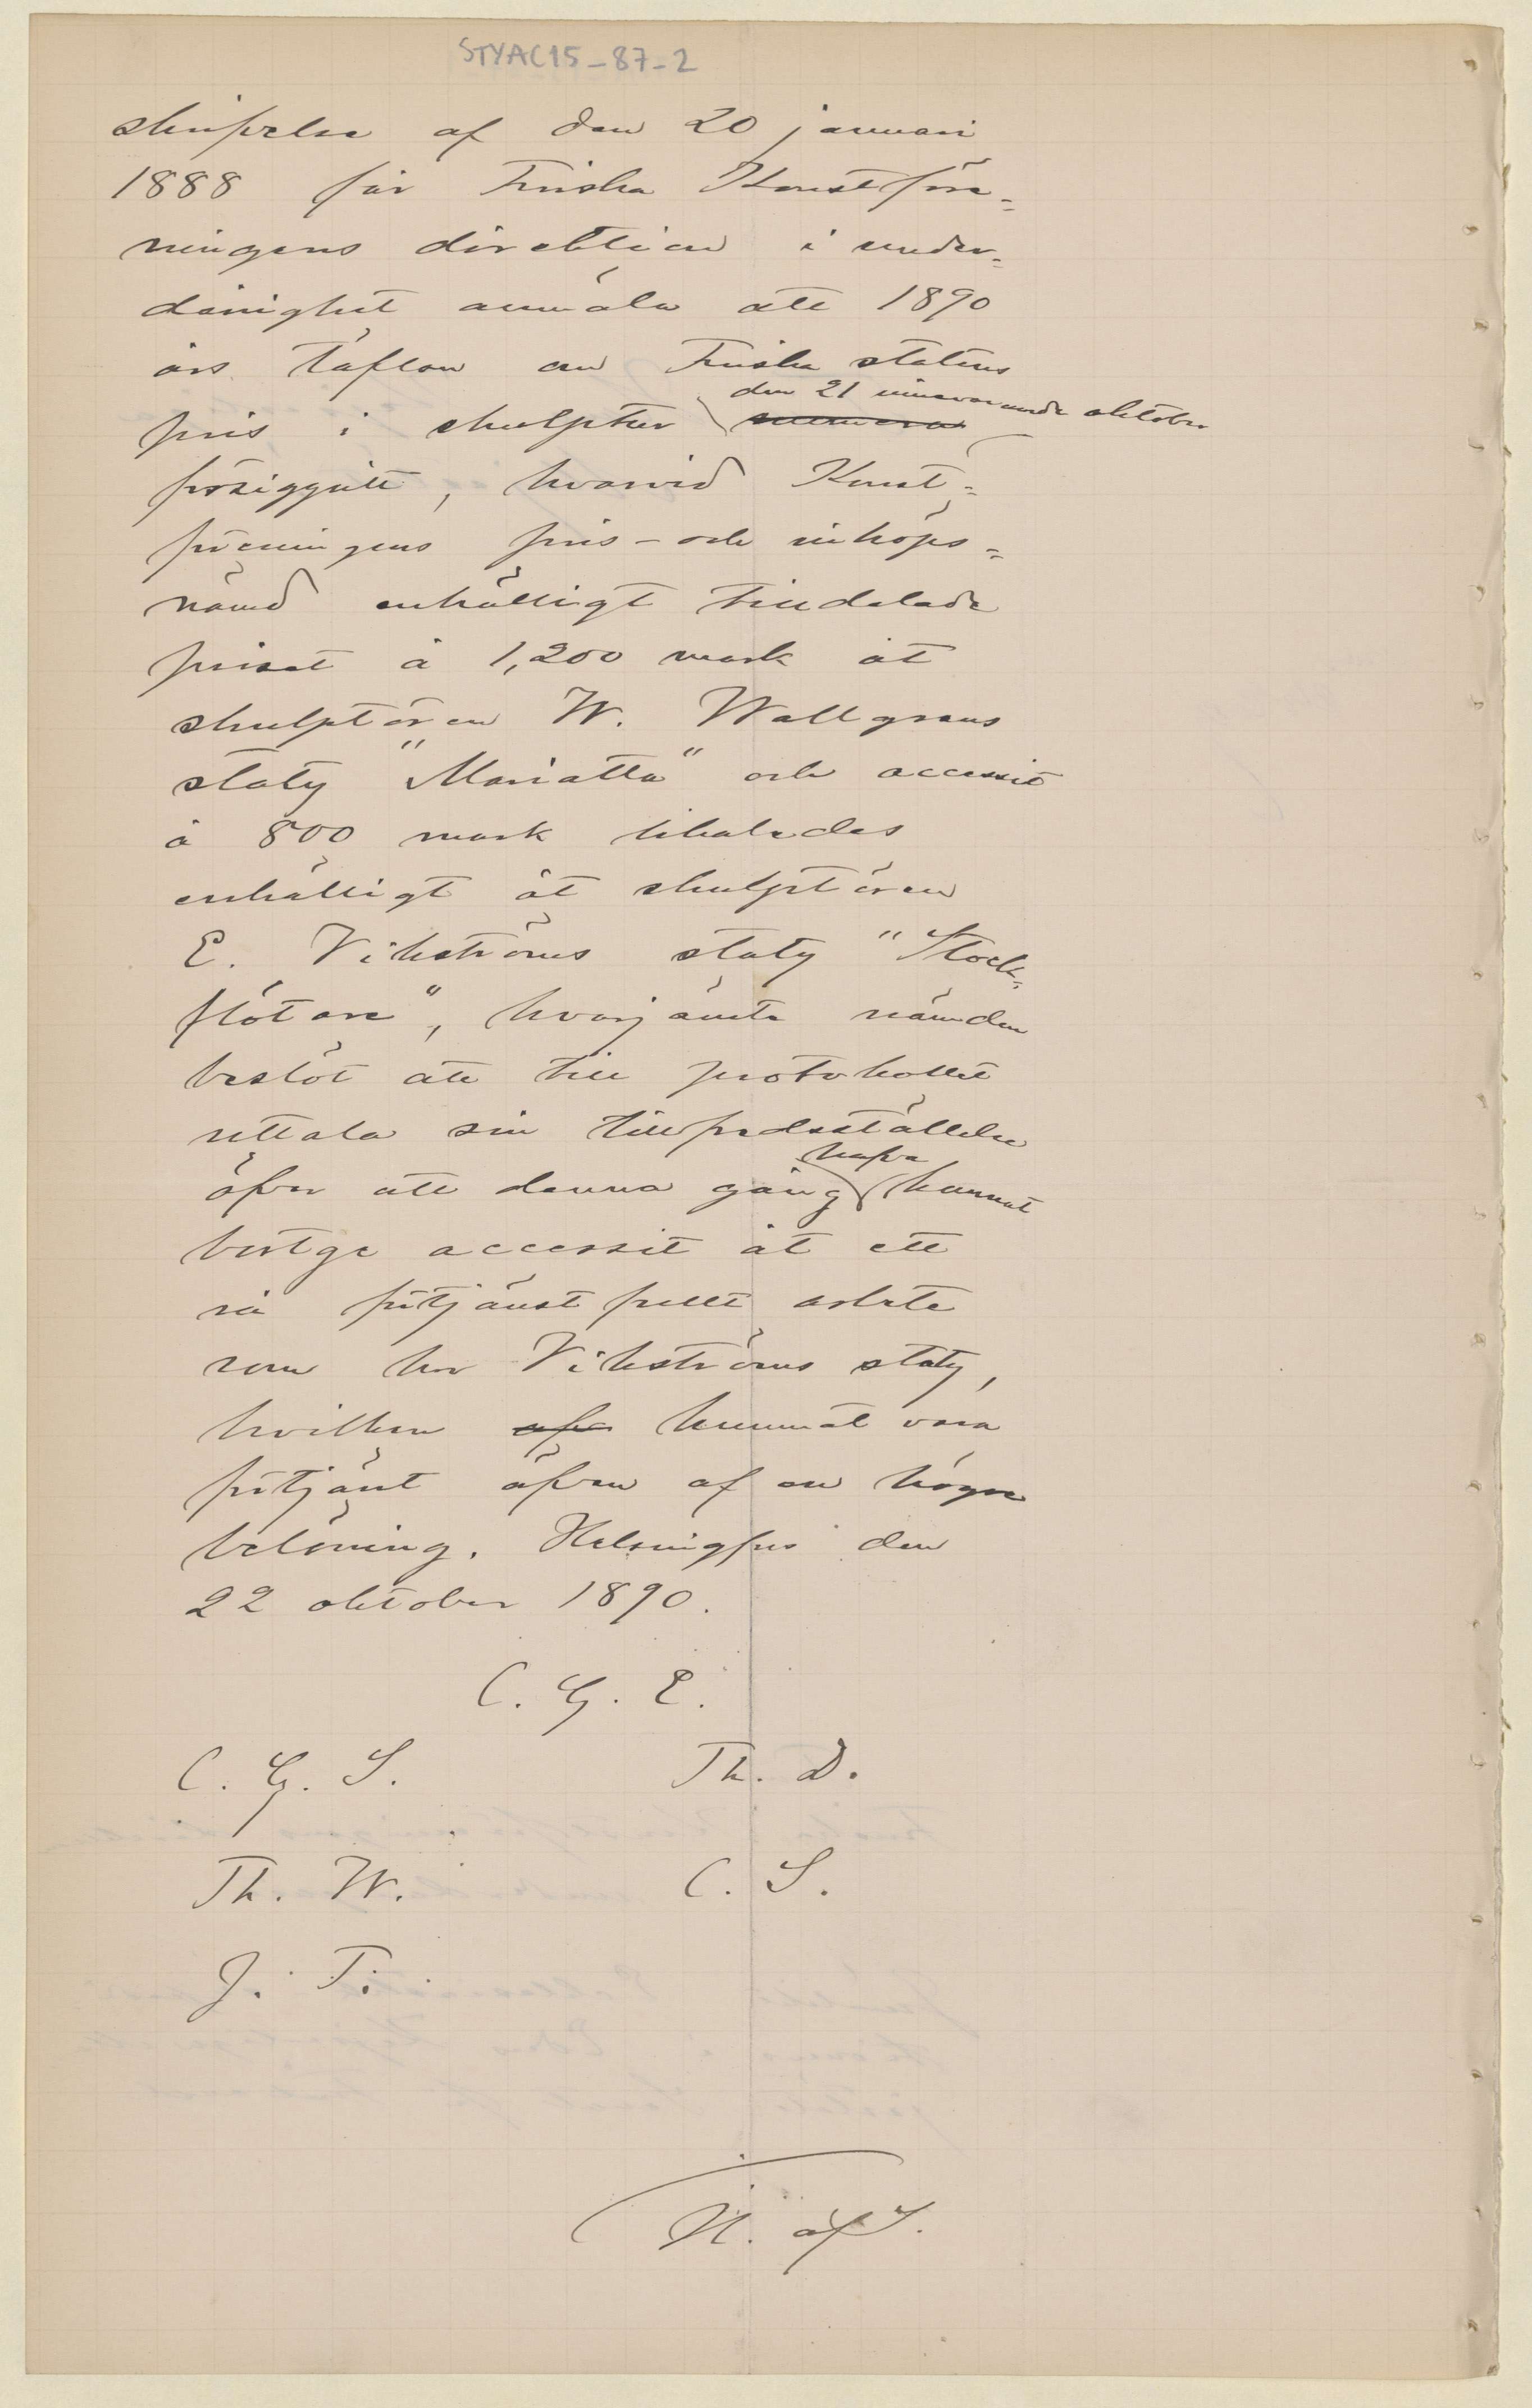 STYAC15-87-2
skrifvelse af den 20 januari
1888 får Finska Konstföre-
ningens direktion i under-
dånighet anmäla att 1890
års täflan om Finska statens
den 21 innevarande oktober
pris i skulptur
försiggått, hvarvid Konst-
föreningens pris- och inköps-
nämd enhälligt tilldelade
priset à 1,200 mark åt
skulptören W. Wallgrens
staty "Mariatta" och accessit
à 800 mark likaledes
enhälligt åt skulptören
E. Vikströms staty "Stock-
flötare", hvarjämte nämden
beslöt att till protokollet
uttala sin tillfredsställelse
hafva
öfver att denna gång kunnat
bortge accessit åt ett
så förtjänstfullt arbete
som hr Vikströms staty,
hvilken kunnat vara
förtjänt äfven af en högre
belöning. Helsingfors den
22 oktober 1890.
C. G. E.
C. G. S. Th. D.
Th. W. C. S.
J. T.
N. af S.